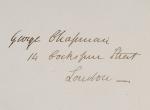 George Chapman
14 Cockspur Street
London —